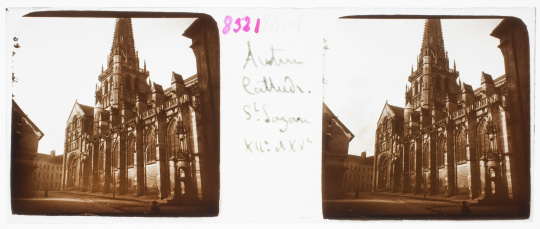 8321
Autun
Cathedr.
St Lazare
XIIe XVe